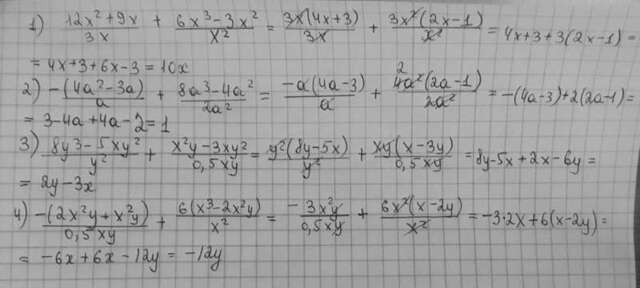 1) (12x²+9x)/3x + (6x³-3x²)/x² = 3x(4x+3)/3x + 3x²(2x-1)/x² = 4x+3+3(2x-1)=
= 4x+3+6x-3=10x
2) -(4a²-3a)/a + (8a³-4a²)/2a² = -a(4a-3)/a + 4a²(2a-1)/2a² 2 = -(4a-3)+2(2a-1)=
= 3-4a+4a-2=1
3) (8y3-5xy²)/y² + (x²y-3xy²)/0,5xy = y²(8y-5x)/y² + xy(x-3y)/0,5xy = 8y-5x+2x-6y=
= 2y-3x
4) -(2x²y+x²y)/0,5xy + 6(x³-2x²y)/x² = -3x²y/0,5xy + 6x²(x-2y)/x² = -3·2x+6(x-2y)=
= -6x+6x-12y=-12y